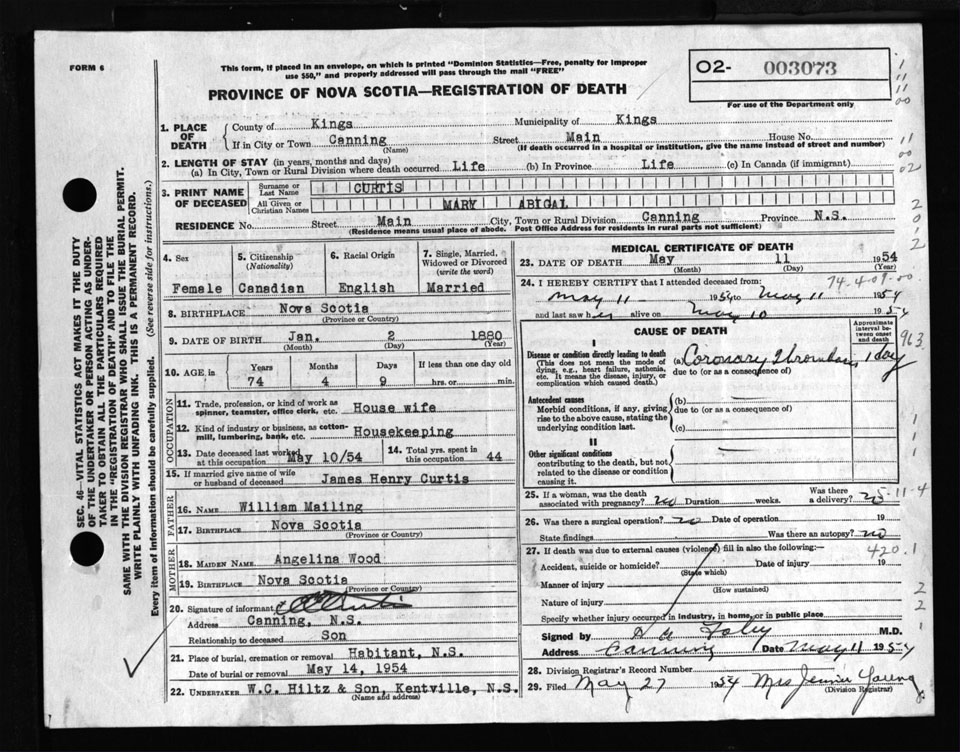 FORM 6
This form, if placed in an envelope, on which is printed "Dominion Statistics—Free, penalty for improper
use $50," and properly addressed will pass through the mail "FREE"
O2- 003073
For use of the Department only
PROVINCE OF NOVA SCOTIA—REGISTRATION OF DEATH
1. PLACE OF DEATH
County of Kings Municipality of Kings
If in City or Town Canning Street Main House No.
(Name) (If death occurred in a hospital or institution, give the name instead of street and number)
2. LENGTH OF STAY (in years, months and days)
(a) In City, Town or Rural Division where death occurred Life (b) In Province Life (c) In Canada (if immigrant)
3. PRINT NAME OF DECEASED
Surname or Last Name CURTIS
All Given or Christian Names MARY ABIGAL
RESIDENCE No. Street Main City, Town or Rural Division Canning Province N.S.
(Residence means usual place of abode. Post Office Address for residents in rural parts not sufficient)
4. Sex
Female
5. Citizenship
(Nationality)
Canadian
6. Racial Origin
English
7. Single, Married, Widowed or Divorced
(write the word)
Married
8. BIRTHPLACE Nova Scotia
(Province or Country)
9. DATE OF BIRTH Jan. 2 1880
(Month) (Day) (Year)
10. AGE in Years Months Days If less than one day old
74 4 9 hrs. or min.
OCCUPATION
11. Trade, profession, or kind of work as
spinner, teamster, office clerk, etc. House wife
12. Kind of industry or business, as cotton-
mill, lumbering, bank, etc. Housekeeping
13. Date deceased last worked
at this occupation May 10/54
14. Total yrs. spent in
this occupation 44
15. If married give name of wife
or husband of deceased James Henry Curtis
FATHER
16. NAME William Mailing
17. BIRTHPLACE Nova Scotia
(Province or Country)
MOTHER
18. MAIDEN NAME Angelina Wood
19. BIRTHPLACE Nova Scotia
(Province or Country)
20. Signature of informant
Address Canning, N.S.
Relationship to deceased Son
21. Place of burial, cremation or removal Habitant, N.S.
Date of burial or removal May 14, 1954
22. UNDERTAKER W.C. Hiltz & Son, Kentville, N.S.
(Name and address)
MEDICAL CERTIFICATE OF DEATH
23. DATE OF DEATH May 11 1954
(Month) (Day) (Year)
74-4-09-00
24. I HEREBY CERTIFY that I attended deceased from:
May 11 1954 to May 11 1954
and last saw her alive on May 10 1954
CAUSE OF DEATH
Approximate interval between onset and death
I
Disease or condition directly leading to death
(This does not mean the mode of
dying, e.g., heart failure, asthenia,
etc. It means the disease, injury, or
complication which caused death.)
(a) Coronary Thrombosis 1 day
due to (or as a consequence of)
963
Antecedent causes
Morbid conditions, if any, giving
rise to the above cause, stating the
underlying condition last.
(b)
due to (or as a consequence of)
(c)
II
Other significant conditions
contributing to the death, but not
related to the disease or condition
causing it.
25. If a woman, was the death
associated with pregnancy? no Duration weeks. Was there
a delivery? no
5-11-4
26. Was there a surgical operation? no Date of operation 19
State findings Was there an autopsy? no
27. If death was due to external causes (violence) fill in also the following:—
420.1
Accident, suicide or homicide? Date of injury 19
(State which)
Manner of injury
(How sustained)
Nature of injury
Specify whether injury occurred in industry, in home, or in public place
Signed by Foley M.D.
Address Canning Date May 11 1954
28. Division Registrar's Record Number
29. Filed May 27 1954 Mrs Jennie Young
(Division Registrar)
SEC. 46—VITAL STATISTICS ACT MAKES IT THE DUTY
OF THE UNDERTAKER OR PERSON ACTING AS UNDER-
TAKER TO OBTAIN ALL THE PARTICULARS REQUIRED
IN THE "REGISTRATION OF DEATH" AND TO FILE THE
SAME WITH THE DIVISION REGISTRAR WHO SHALL ISSUE THE BURIAL PERMIT.
WRITE PLAINLY WITH UNFADING INK. THIS IS A PERMANENT RECORD.
Every item of information should be carefully supplied. (See reverse side for instructions.)